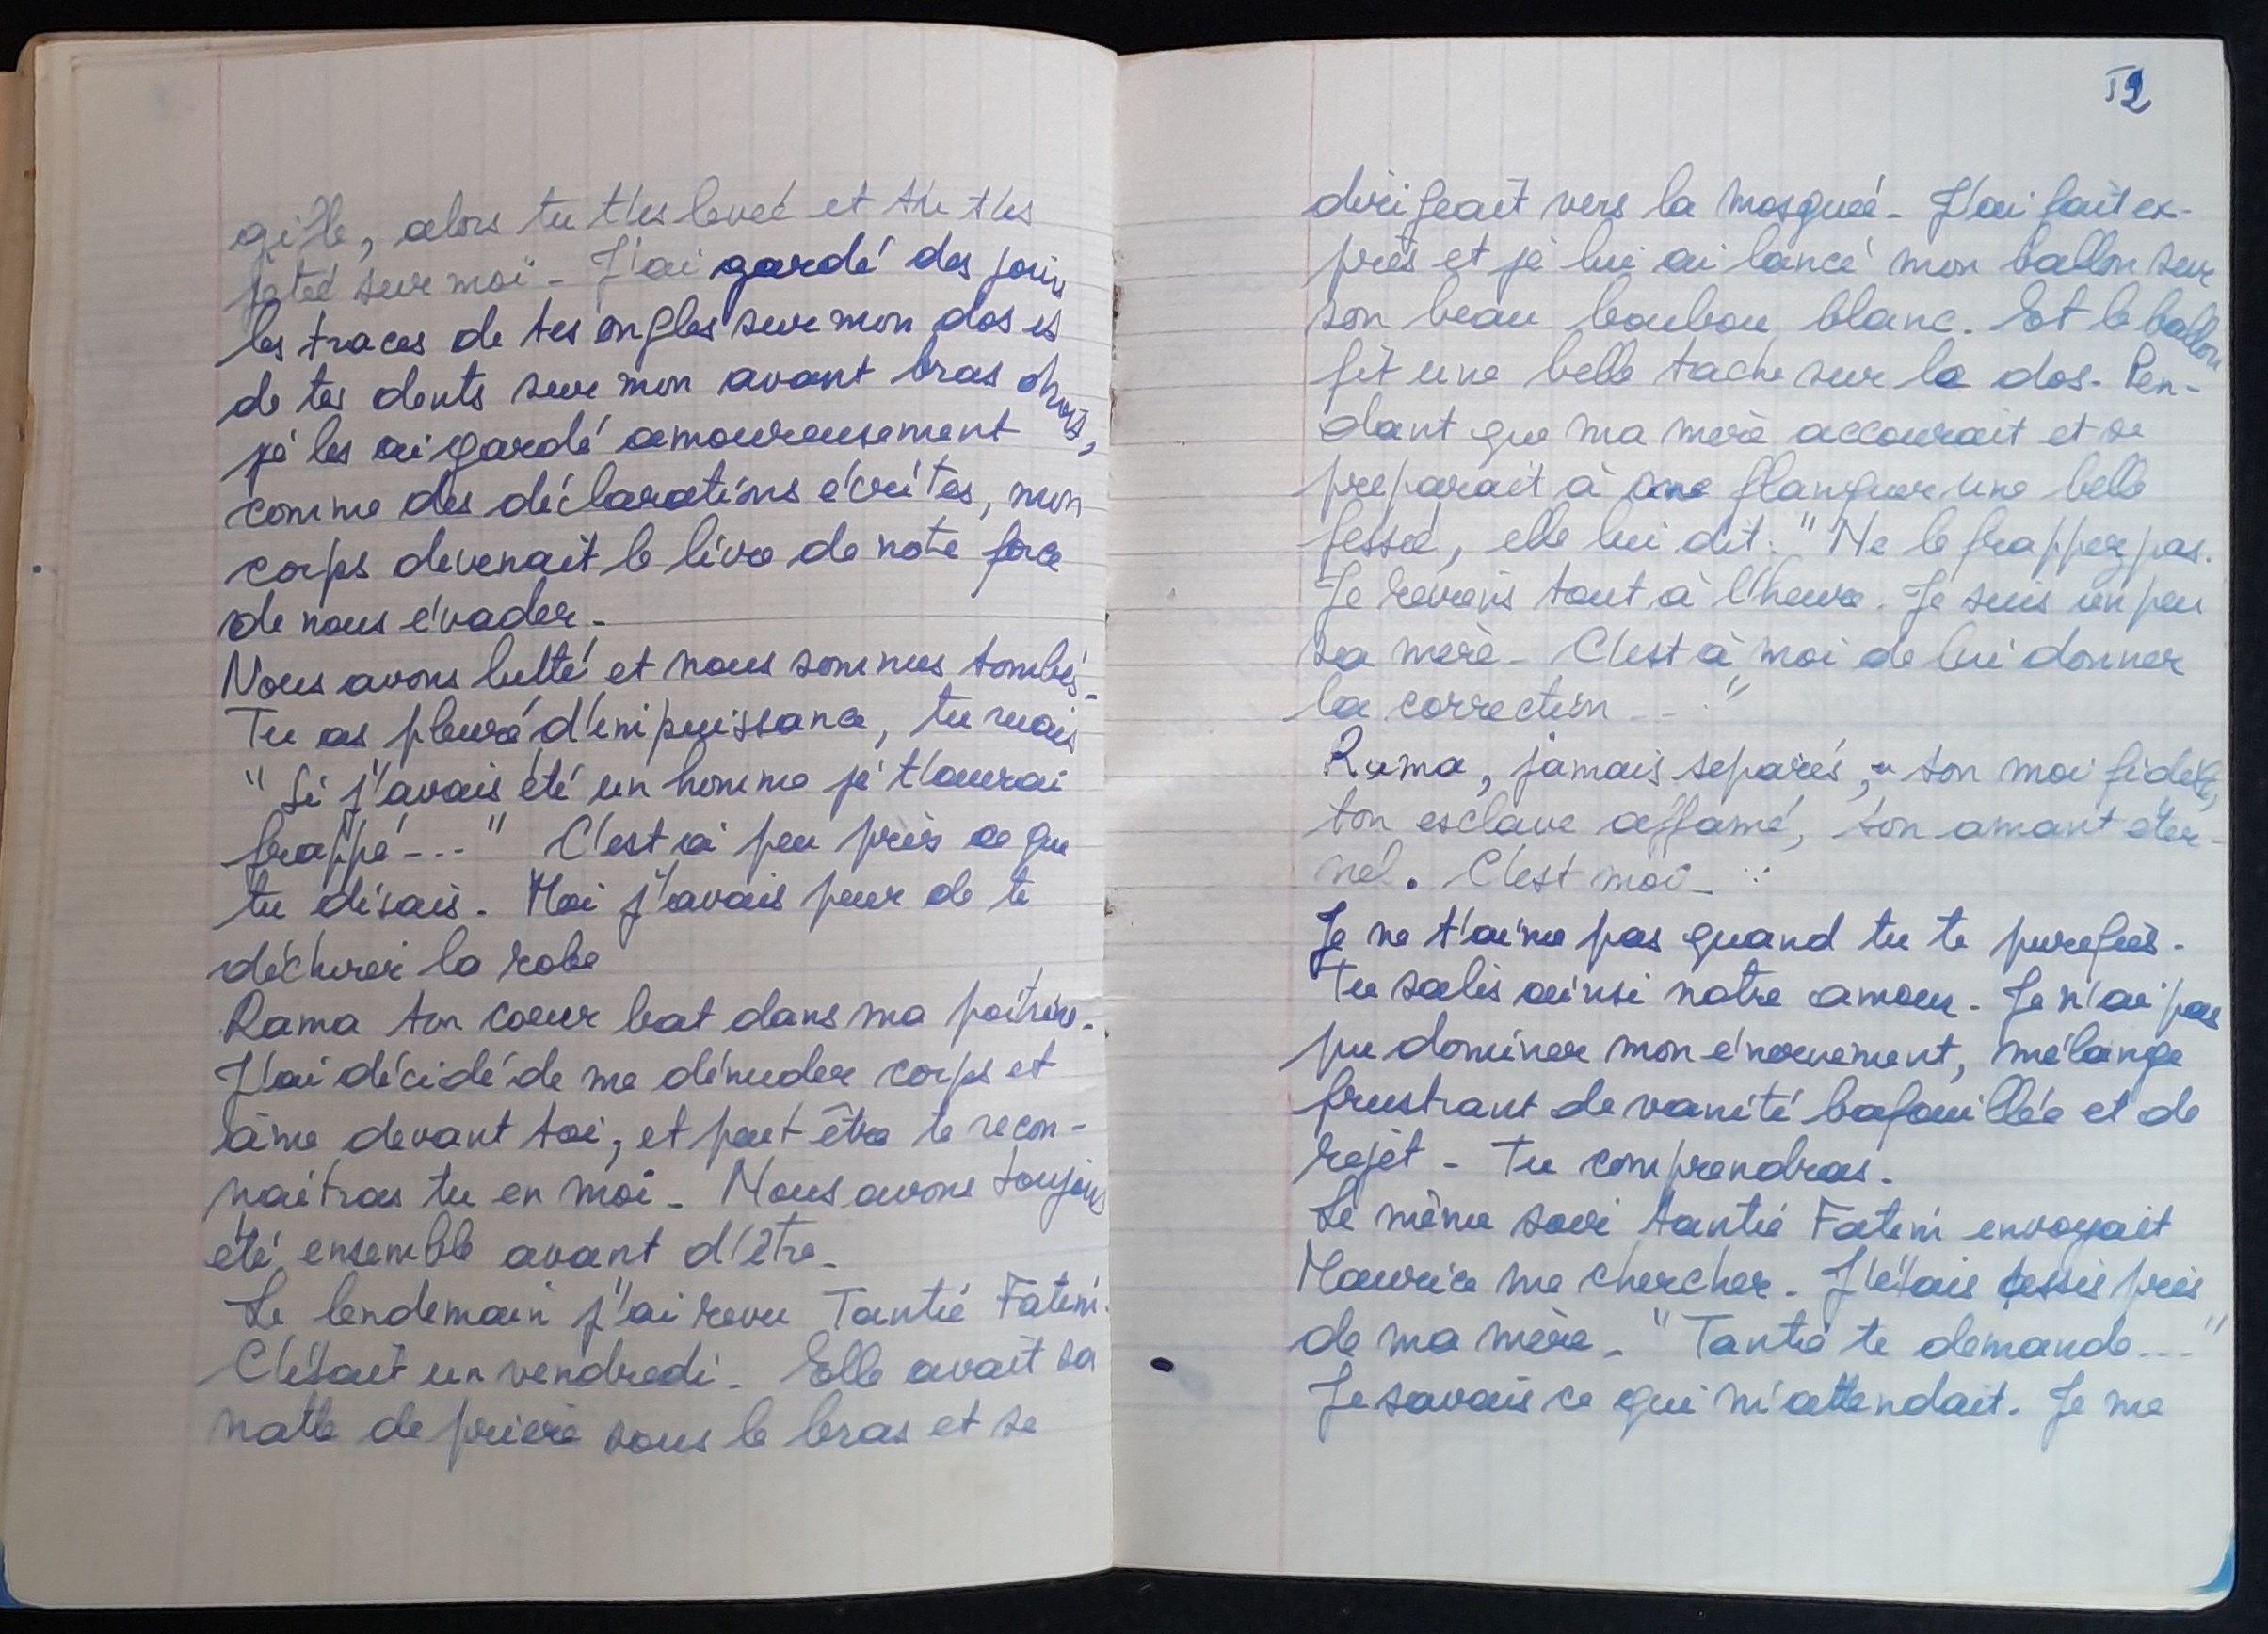 gifle, alors tu t'es levée et tu t'es
jetée sur moi - J'ai gardé des jours
les traces de tes ongles sur mon dos et
de tes dents sur mon avant bras droit,
je les ai gardé amoureusement
comme des déclarations écrites, mon
corps devenait le livre de note force
de nous évader.
Nous avons lutté et nous sommes tombés.
Tu as pleuré d'impuissance, tu
"Si j'avais été un homme je t'aurai
frappé ---" C'est à peu près ce que
tu disais. Moi j'avais peur de te
déchirer la robe
Rama ton coeur bat dans ma poitrine.
J'ai décidé de me dénuder corps et
âme devant toi, et peut être te recon-
naitras tu en moi. Nous avons toujours
été ensemble avant d'être.
Le lendemain j'ai revu Tantie Fatim.
C'était un vendredi. Elle avait sa
natte de prière sous le bras et se
12
dirigeait vers la mosquée. J'ai fait ex-
près et je lui ai lancé mon ballon sur
son beau boubou blanc. Et le ballon
fit une belle tache sur le dos. Pen-
dant que ma mère accourait et se
preparait à me flanquer une belle
fessée, elle lui dit : "Ne le frappez pas.
Je reviens tout à l'heure. Je suis un peu
sa mère - C'est à moi de lui donner
la correction --- "
Rama, jamais separés, ton moi fidèle,
ton esclave affamé, ton amant éter-
nel. C'est moi -
Je ne t'aime pas quand tu te purefies.
Tu salis ainsi notre amour. Je n'ai pas
pu dominer mon énervement, mélange
frustrant de vanité bafouillée et de
rejet - Tu comprendras.
Le même soir tantie Fatim envoyait
Maurice me chercher. J'étais assis près
de ma mère. "Tantie te demande ---"
Je savais ce qui m'attendait. Je me